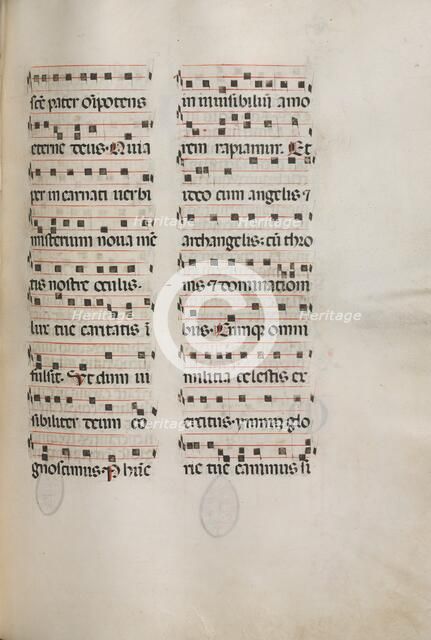 sc̄e pater om̄ipotens
eterne deus. Quia
per incarnati uerbi
misterium noua mē
tis nostre oculis.
lux tue caritatis ī
fulsit. Ut dum ui
sibiliter deum co
gnoscimus. P hūc
in inuisibiliū amo
rem rapiamur. Et
ideo cum angelis ⁊
archangelis: cū thro
nis ⁊ dominationi
bus. Cumq̄ omni
militia celestis ex
ercitus. ymnum glo
rie tue canimus si
Heritage
Heritage
Heritage
Heritage
Heritage
Heritage
C